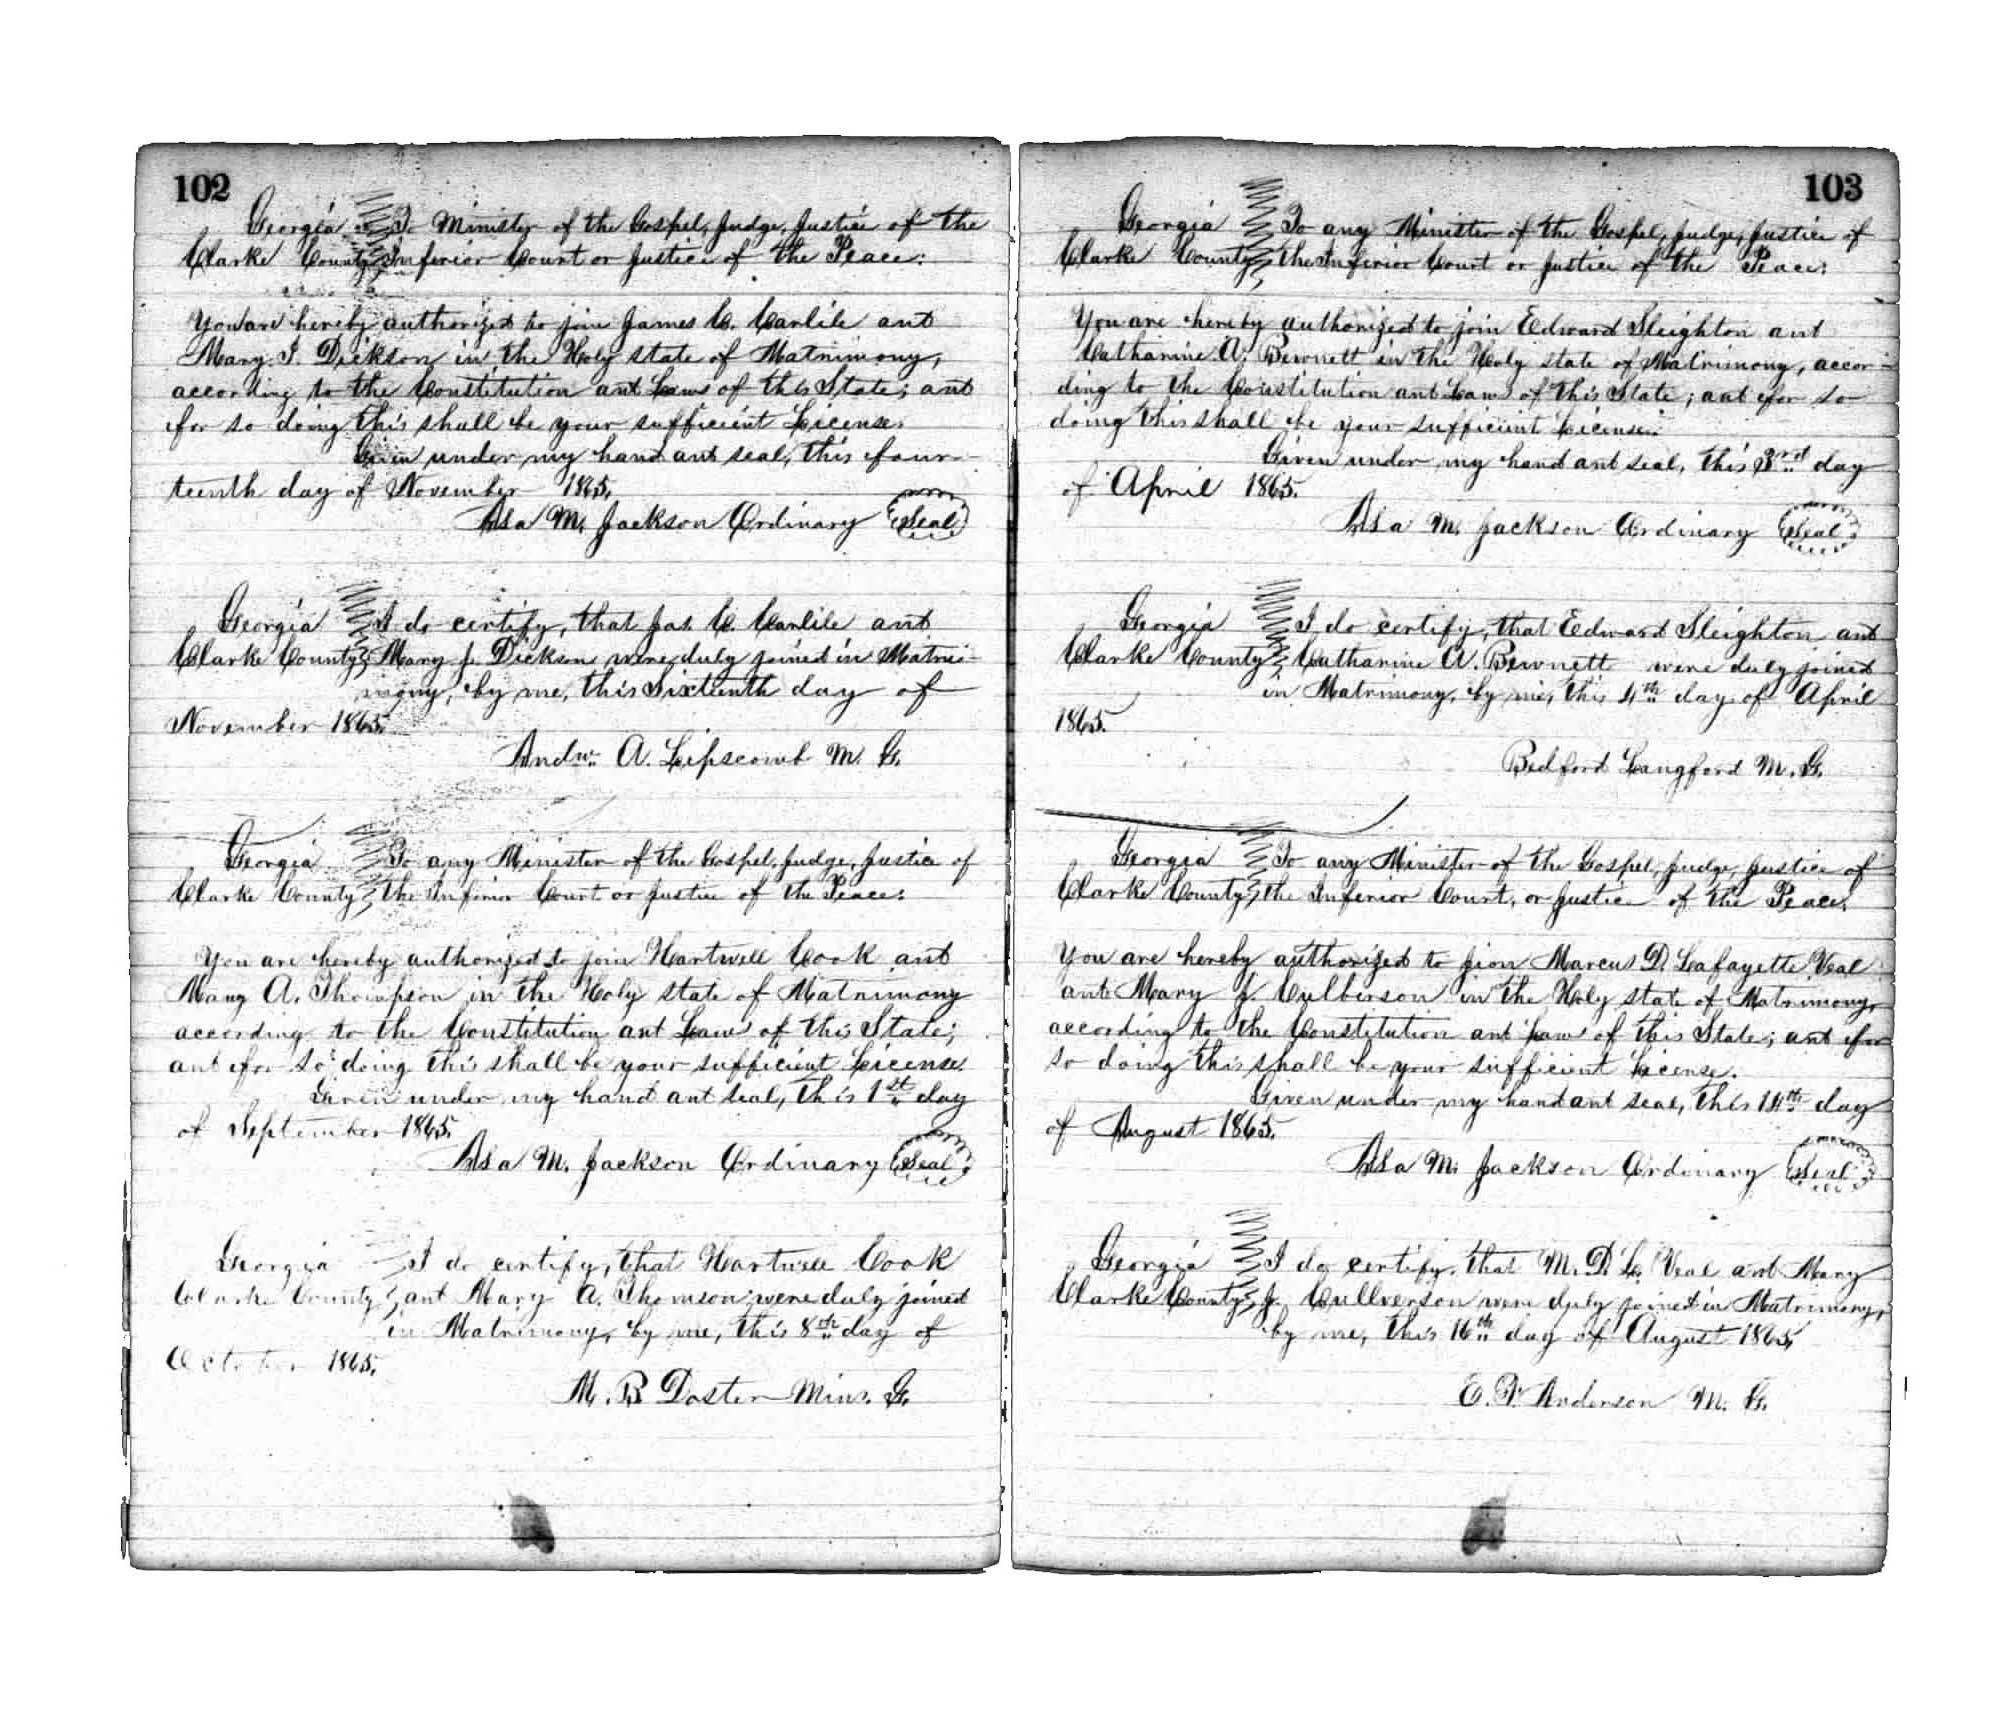 102
Georgia To Minister of the Gospel, Judge, Justice of the
Clarke County Inferior Court or Justice of the Peace:
You are hereby authorized to join James C. Carlile and
Mary J. Dickson in the Holy state of Matrimony,
according to the Constitution and Laws of this State; and
for so doing this shall be your sufficient License.
Given under my hand and seal, this four-
teenth day of November 1865.
Asa M. Jackson Ordinary Seal
Georgia I do certify, that Jas. C. Carlile and
Clarke County Mary J. Dickson were duly joined in Matri-
mony, by me, this Sixteenth day of
November 1865.
Andw. A. Lipscomb M. G.
Georgia To any Minister of the Gospel, Judge, Justice of
Clarke County the Inferior Court or Justice of the Peace:
You are hereby authorized to join Hartwell Cook and
Mary A. Thompson in the Holy state of Matrimony
according to the Constitution and Laws of this State;
and for so doing this shall be your sufficient License.
Given under my hand and seal, this 1st day
of September 1865.
Asa M. Jackson Ordinary Seal
Georgia I do certify, that Hartwell Cook
Clarke County and Mary A. Thomson were duly joined
in Matrimony, by me, this 8th day of
October 1865.
M. B Doster Mins. G.
103
Georgia To any Minister of the Gospel, Judge, Justice of
Clarke County the Inferior Court or Justice of the Peace:
You are hereby authorized to join Edward Sleighton and
Catharine A. Bewnett in the Holy state of Matrimony, accor-
ding to the Constitution and Laws of this State; and for so
doing this shall be your sufficient License.
Given under my hand and seal, this 3rd day
of April 1865.
Asa M. Jackson Ordinary Seal
Georgia I do certify, that Edward Sleighton and
Clarke County Catharine A. Bewnett were duly joined
in Matrimony, by me, this 4th day of April
1865.
Bedford Langford M. G.
Georgia To any Minister of the Gospel, Judge, Justice of
Clarke County the Inferior Court, or Justice of the Peace.
You are hereby authorized to jion Marcus D. Lafayette Veal
and Mary J. Culberson in the Holy state of Matrimony,
according to the Constitution and Laws of this State; and for
so doing this shall be your sufficient License.
Given under my hand and seal, this 14th day
of August 1865.
Asa M. Jackson Ordinary Seal
Georgia I do certify, that M. D. L. Veal and Mary
Clarke County J. Cullverson were duly joined in Matrimony,
by me, this 16th day of August 1865.
E. P. Anderson M. G.